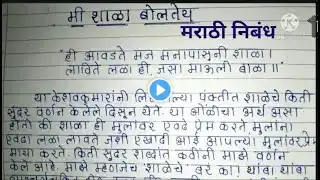 मी शाळा बोलतेय
मराठी निबंध
"ही आवडते मज मनापासुनी शाळा।
लाविते लळा ही, जसा माऊली बाळा॥"
या केशवकुमारांनी लिहिलेल्या पंक्तीत शाळेचे किती
सुंदर वर्णन केलेले दिसून येते. या ओळींचा अर्थ असा
होतो की शाळा ही मुलांवर एवढे प्रेम करते मुलांना
एवढा लळा लावते जशी एखादी आई आपल्या मुलांवर प्रेम
माया करते. किती सुंदर शब्दांत कवींनी माझे वर्णन
केले आहे. माझे म्हणजेच शाळेचे बरं का! थांबा थांबा